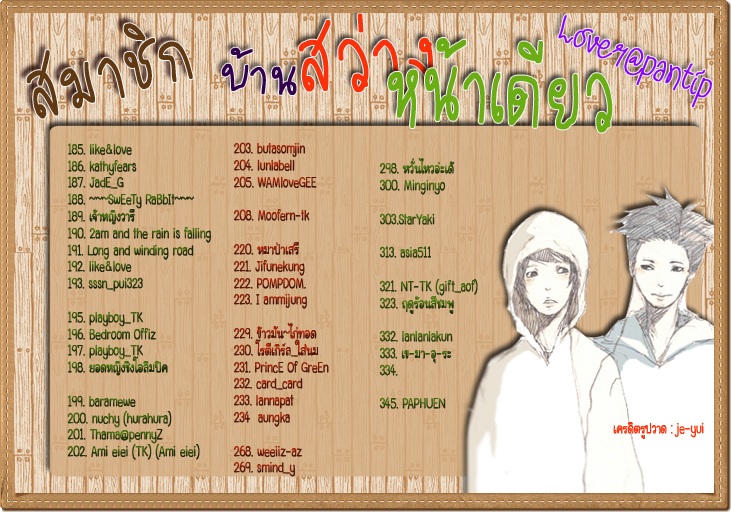 สมาชิก บ้านสว่างหน้าเดียว
Lover@pantip
185. like&love
186. kathyfears
187. JadE_G
188. ~~~SwEeTy RaBbIt~~~
189. เจ้าหญิงวารี
190. 2am and the rain is falling
191. Long and winding road
192. like&love
193. sssn_pui323
195. playboy_TK
196. Bedroom Offiz
197. playboy_TK
198. ยอดหญิงชิงโอลิมปิค
199. baramewe
200. nuchy (hurahura)
201. Thama@pennyZ
202. Ami eiei (TK) (Ami eiei)
203. butasomjin
204. lunlabell
205. WAMloveGEE
208. Moofern-tk
220. หมาป่าเสรี
221. Jifunekung
222. POMPDOM.
223. I ammijung
229. ข้าวมัน~ไก่ทอด
230. โรตีเกิร์ล_ใส่นม
231. PrincE Of GreEn
232. card_card
233. lannapat
234 aungka
268. weeiiz-az
269. smind_y
298. หวั่นไหวอ่ะเด้
300. Minginyo
303.StarYaki
313. asia511
321. NT-TK (gift_aof)
323. ฤดูร้อนสีชมพู
332. lanlanlakun
333. เข-มา-อุ-ระ
334.
345. PAPHUEN
เครดิตรูปวาด : je-yui